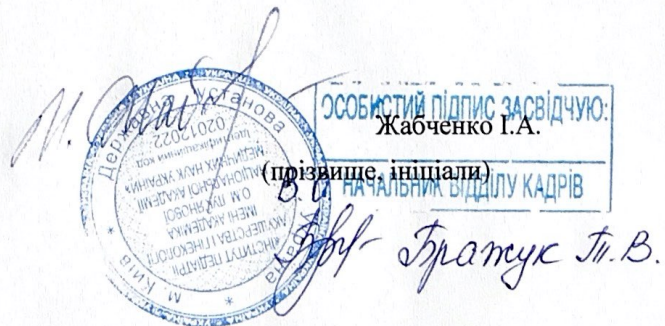 ОСОБИСТИЙ ПІДПИС ЗАСВІДЧУЮ:
Жабченко І.А.
(прізвище, ініціали)
В.о НАЧАЛЬНИК ВІДДІЛУ КАДРІВ
Бражук Т.В.
Державна установа
«ІНСТИТУТ ПЕДІАТРІЇ,
АКУШЕРСТВА І ГІНЕКОЛОГІЇ
ІМЕНІ АКАДЕМІКА
О.М. ЛУК'ЯНОВОЇ
НАЦІОНАЛЬНОЇ АКАДЕМІЇ
МЕДИЧНИХ НАУК УКРАЇНИ»
Ідентифікаційний код
02012022
* м. Київ * Україна